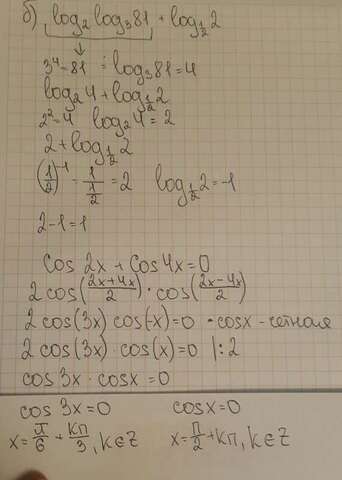 б) log₂ log₃81 + log_{1/2} 2
↓
3⁴=81 ⇒ log₃81=4
log₂4 + log_{1/2} 2
2²=4 log₂4=2
2+log_{1/2} 2
(1/2)⁻¹ = 1/(1/2) = 2 log_{1/2} 2=-1
2-1=1
cos2x + cos4x=0
2cos((2x+4x)/2)·cos((2x-4x)/2)
2cos(3x) cos(-x)=0 •cosx-четная
2cos(3x)·cos(x)=0 |:2
cos3x·cosx=0
cos3x=0 cosx=0
x=π/6+kπ/3, k∈Z x=π/2+kπ, k∈Z